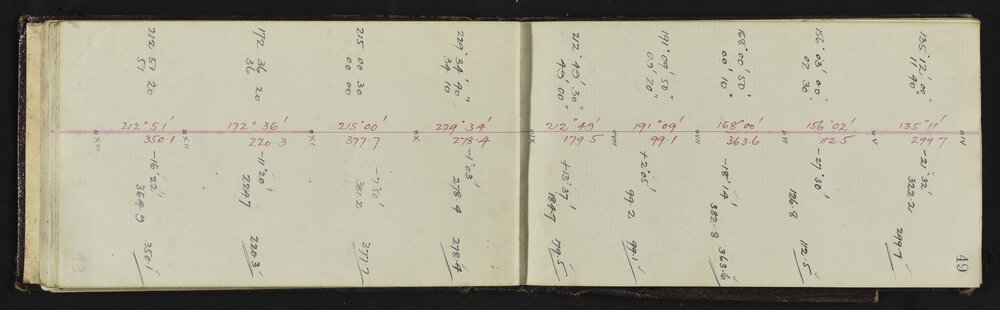 49
135° 12' 00"
11' 40"
135° 11'
299.7
-21° 32'
322.2
299.7
□V
156° 03' 00"
02 30
156° 02'
112.5
-27° 30'
126.8
112.5
□VI
168° 00' 50"
00 10"
168° 00'
363.6
-18° 14'
382.8
363.6
□VII
191° 09' 50"
09' 20"
191° 09'
99.1
+2° 05'
99.2
99.1
□VIII
212° 49' 30"
49' 00"
212° 49'
179.5
+13° 37'
184.7
179.5
□IX
229° 34' 40"
34 10
229° 34'
278.4
-1° 03'
278.4
278.4
□X
215 00 30
00 00
215° 00'
377.7
377.7
□XI
172 36
36 20
172° 36'
220.3
-11° 20'
224.7
220.3
□XII
212 51 20
51
212° 51'
350.1
-16° 22'
364.9
350.1
□XIII